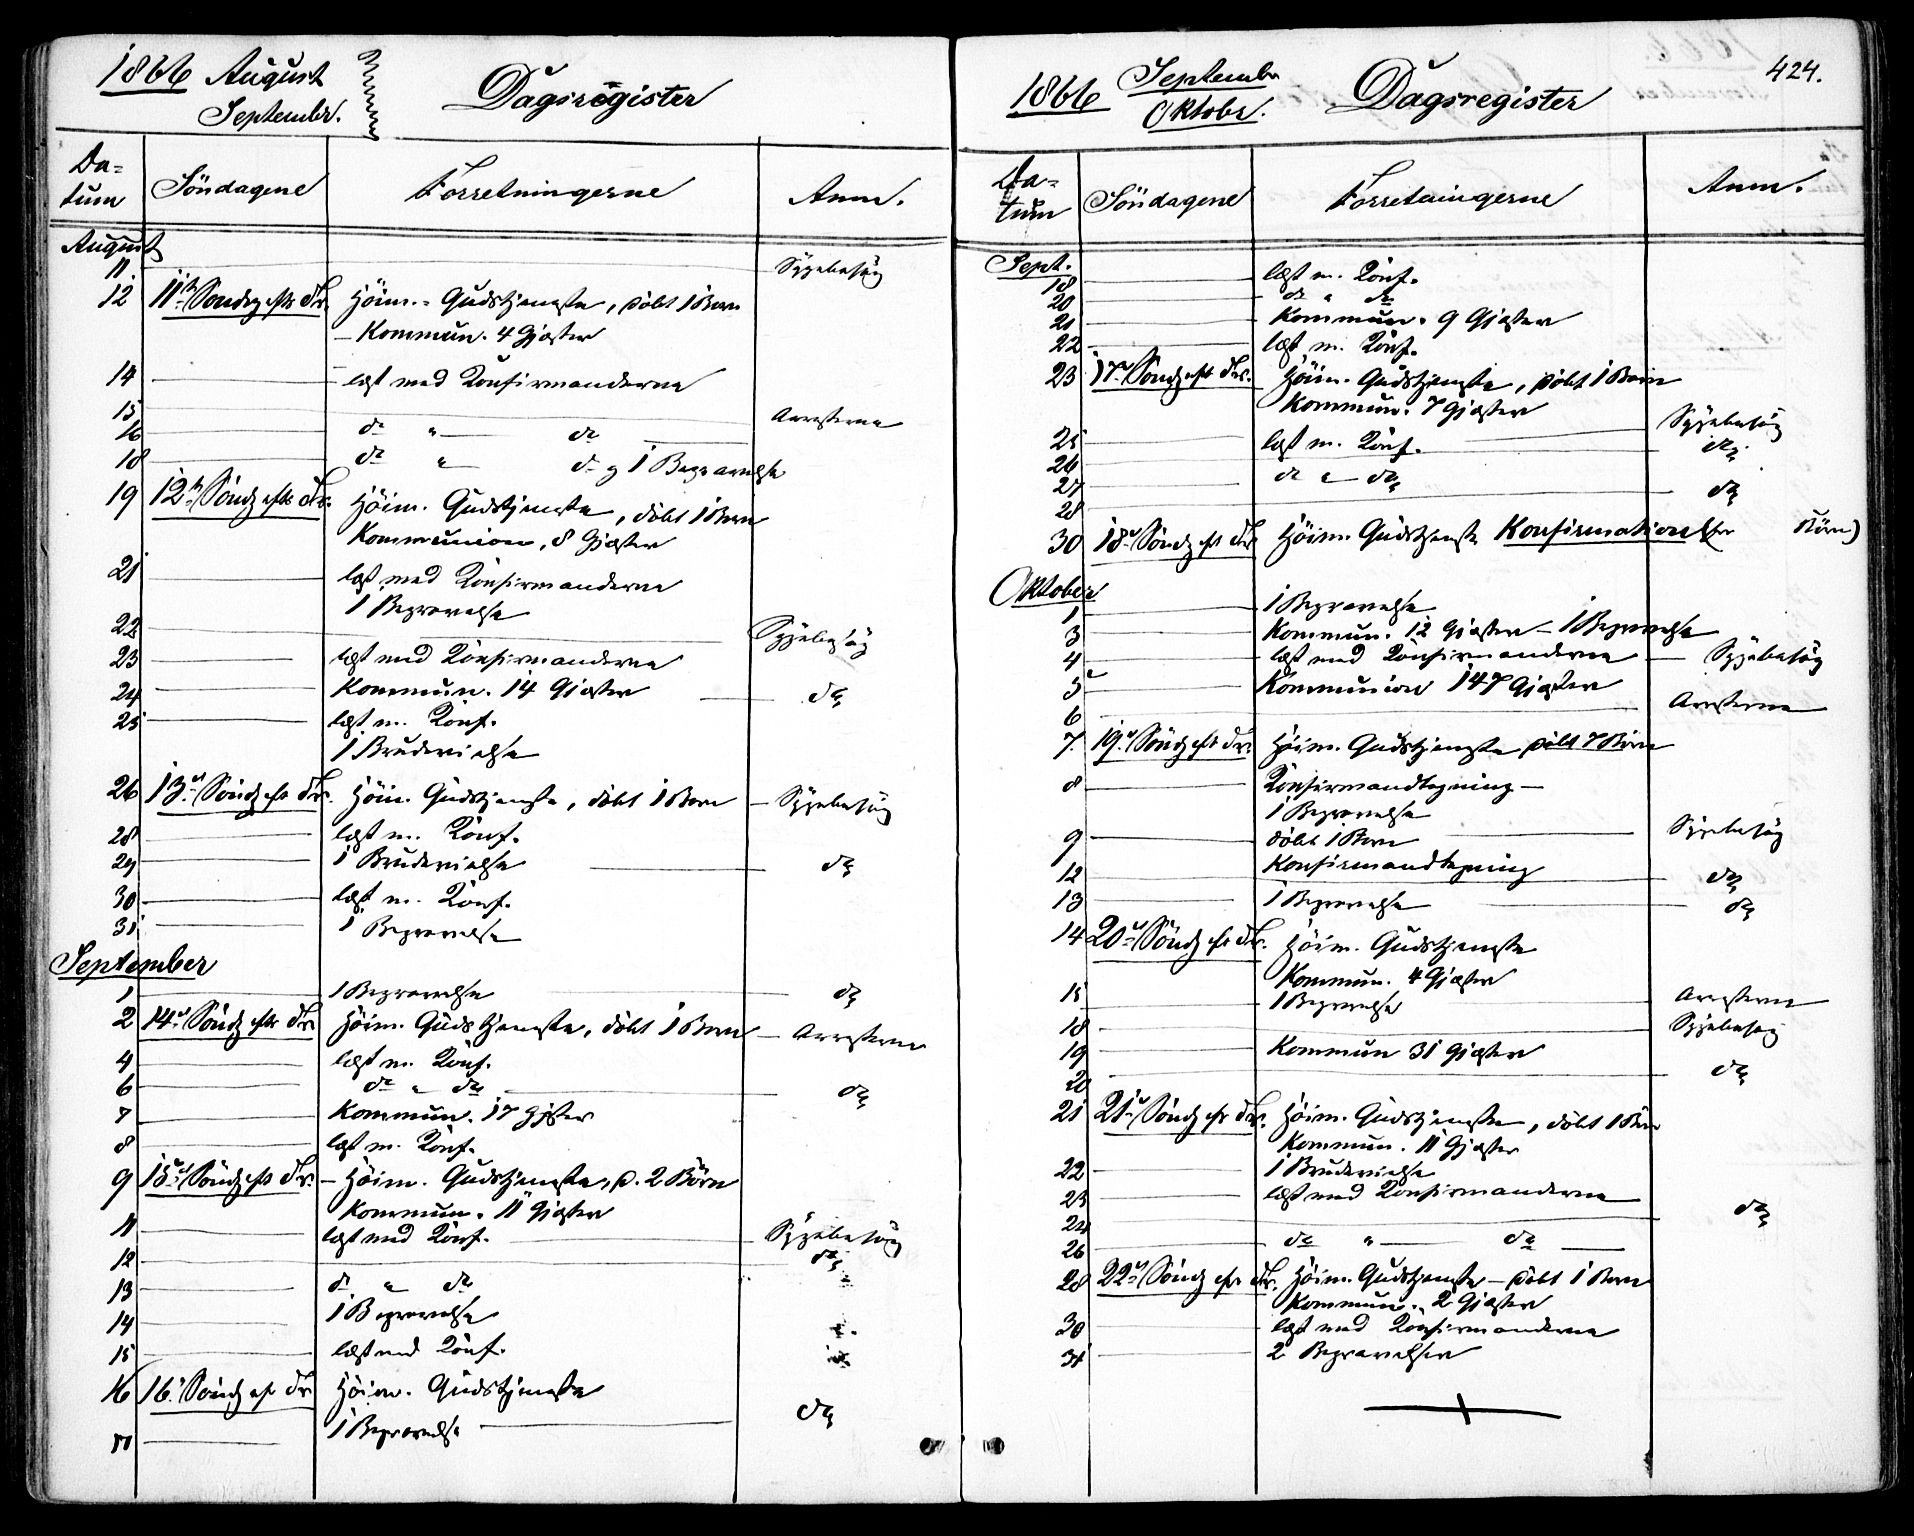 1866 August
Septembr.
Dagsregister
Da-
tum
Söndagene
Forretningerne
Anm.
August
11 Sygebesög
12 11te Söndag eft. Tr. Höim.- Gudstjeneste, döbt 1 Barn
- Kommun. 4 Gjæster
14 læst med Konfirmanderne
15 Arresterne
16 do " do
18 do " do og 1 Begravelse
19 12te Söndg eft. Tr. Höim. Gudstjeneste, döbt 1 Barn
Kommunion, 8 Gjæster
21 læst med Konfirmanderne
1 Begravelse
22 Sygebesög
23 læst med Konfirmanderne
24 Kommun. 14 Gjæster do
25 læst m. Konf.
1 Brudevielse
26 13de Söndg eft. Tr. Höim. Gudstjeneste, döbt 1 Barn - Sygebesög
28 læst m. Konf.
29 1 Brudevielse do
30 læst m. Konf.
31 1 Begravelse
September
1 1 Begravelse do
2 14de Söndg eft. Tr. Höim. Gudstjeneste, döbt 1 Barn - Arresterne
4 læst m. Konf.
6 do " do do
7 Kommun. 17 Gjster
8 læst m. Konf.
9 15de Söndg eft. Tr. - Höim. Gudstjeneste, d. 2 Börn
Kommun. 11 Gjæster
11 læst med Konf. Sygebesög
12 do
13 do " do
14 1 Begravelse
15 læst med Konf.
16 16. Söndg eft. Tr. Höim. Gudstjeneste
1 Begravelse do
17
1866 Septembr
Oktobr.
Dagsregister
424.
Da-
tum
Söndagene
Forretningerne
Anm.
Sept.
18 læst m. Konf.
20 do " do
21 Kommun. 9 Gjæster
22 læst m. Konf.
23 17de Söndg eft. Tr. Höim. Gudstjeneste, döbt 1 Barn
Kommun. 7 Gjæster
25 læst m. Konf. Sygebesög
26 do
27 do " do
28 do
30 18de Söndg eft. Tr. Höim. Gudstjeneste Konfirmation Börn)
Oktober
1 1 Begravelse
3 Kommun. 12 Gjæster - 1 Begravelse
4 læst med Konfirmanderne - Sygebesög
5 Kommunion 147 Gjæster
6 Arresterne
7. 19de Söndg eft. Tr. Höim. Gudstjeneste döbt 7 Börn
8 Konfirmandlæsning -
1 Begravelse
9 döbt 1 Barn Sygebesög
12 Konfirmandlæsning do
13 1 Begravelse do
14 20de Söndg eft. Tr. Höim. Gudstjeneste
Kommun. 4 Gjæster
15 1 Begravelse Arresterne
18 Sygebesög
19 Kommun 31 Gjæster
20 do
21 21de Söndg eft. Tr. Höim. Gudstjeneste, döbt 1 Barn
Kommun. 11 Gjæster
22 1 Brudevielse
23 læst med Konfirmanderne
24 do
26 do " do
28 22de Söndg eft. Tr. Höim. Gudstjeneste - döbt 1 Barn
Kommun. 2 Gjæster
30 læst med Konfirmanderne
31 2 Begravelser